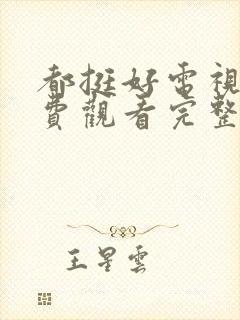 都挺好電視
費觀看完整
王星雲